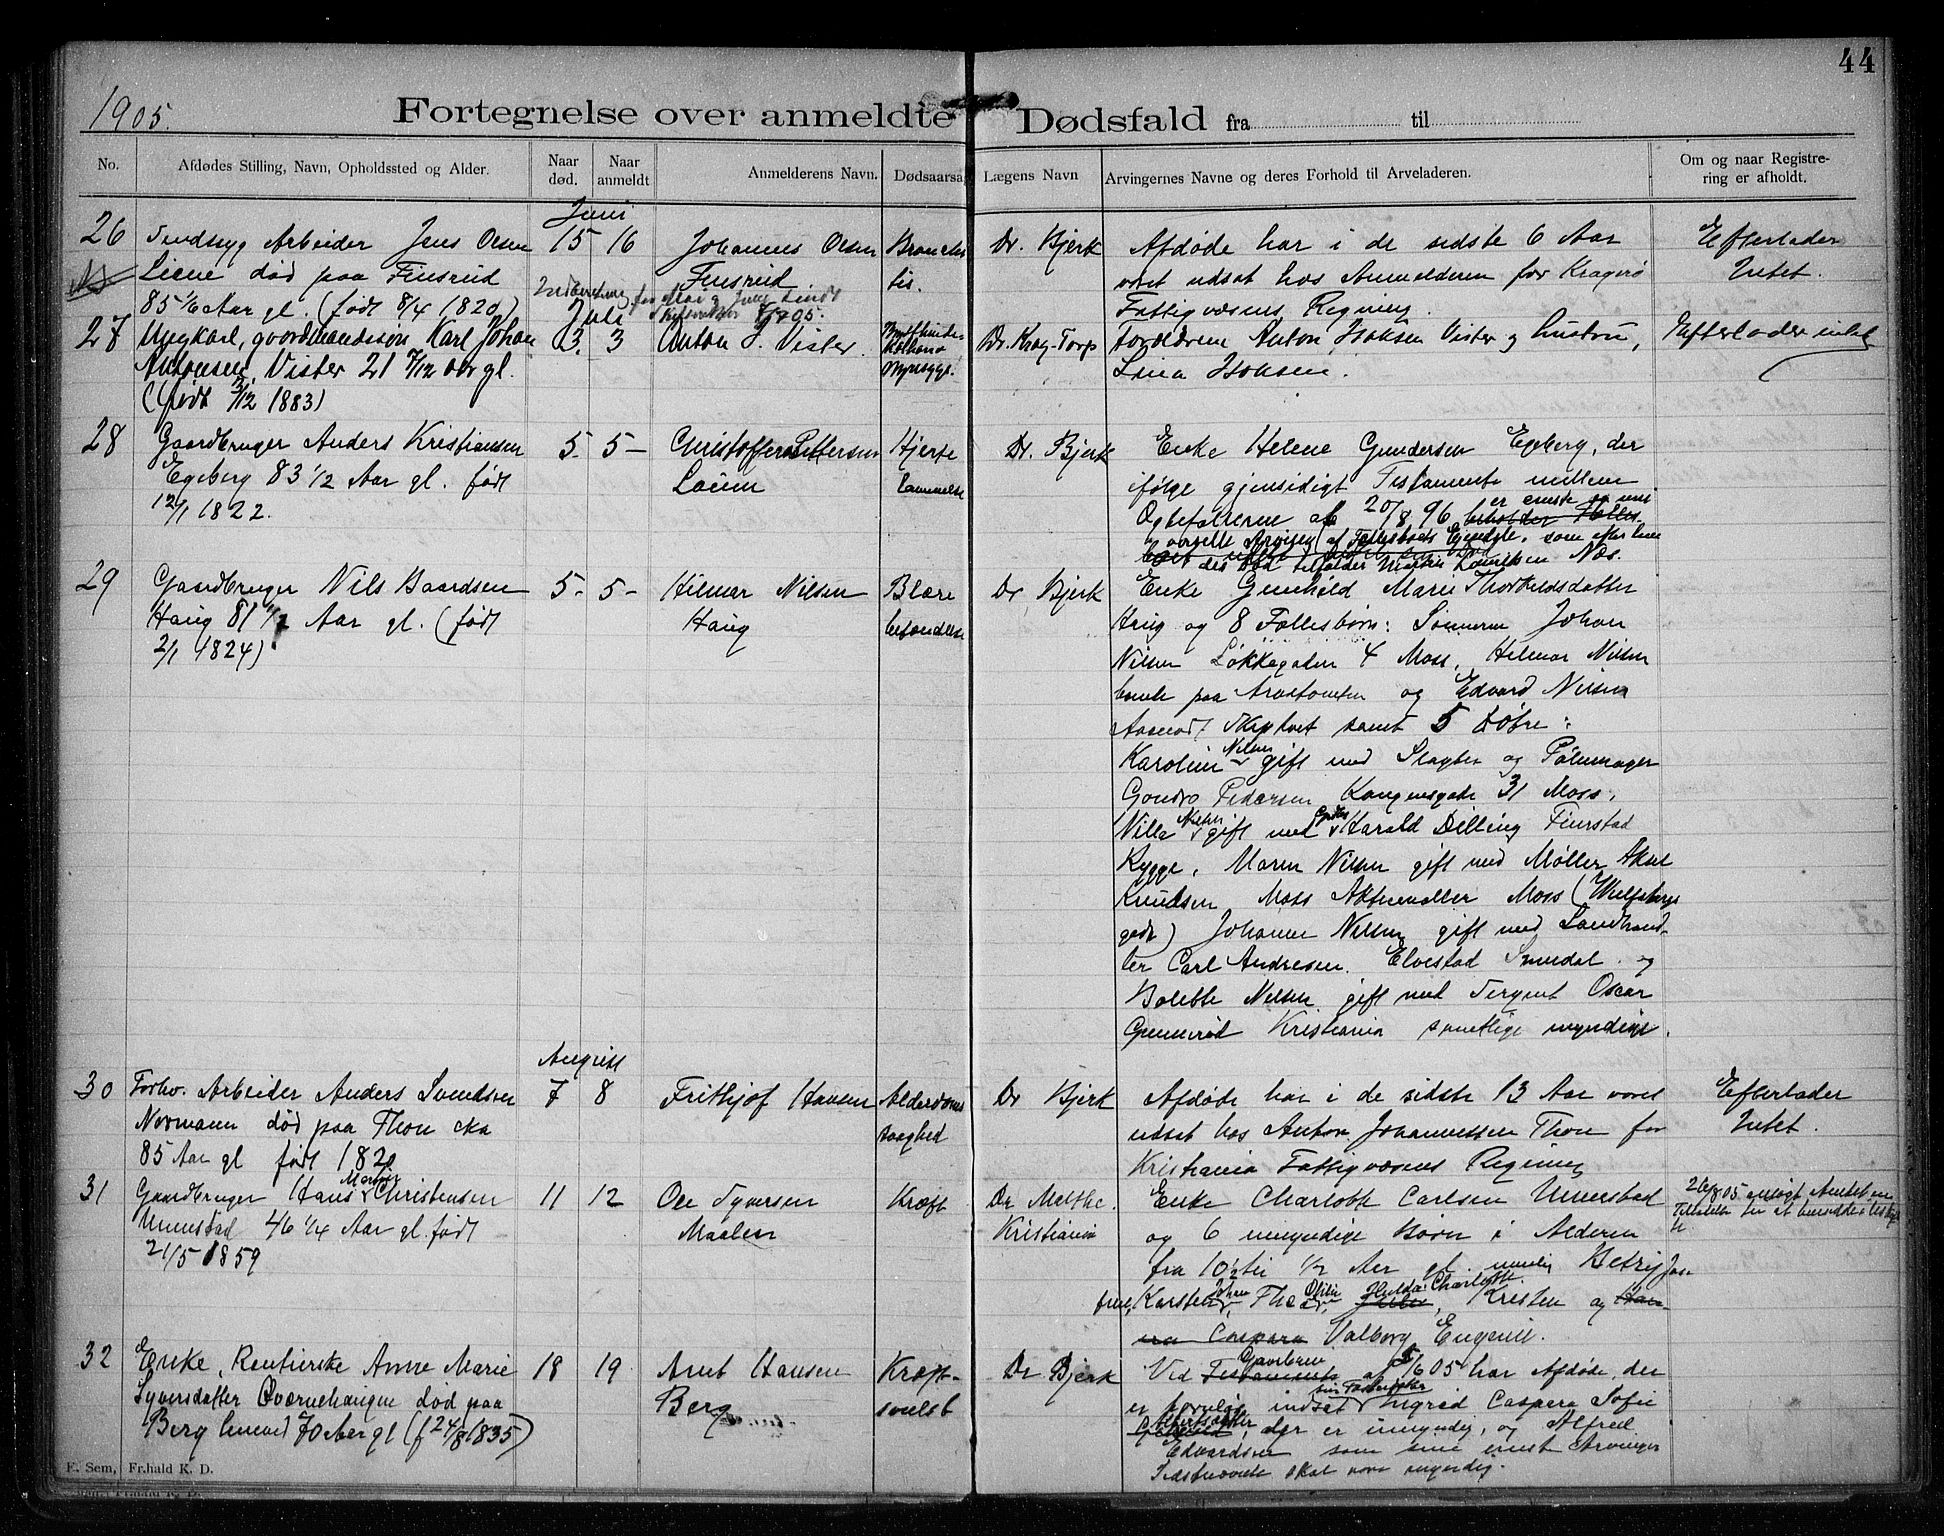 44
1905.
Fortegnelse over anmeldte Dødsfald fra til
No.
Afdødes Stilling, Navn, Opholdssted og Alder.
Naar død.
Naar anmeldt
Anmelderens Navn.
Dødsaarsa
Lægens Navn
Arvingernes Navne og deres Forhold til Arveladeren.
Om og naar Registre-
ring er afholdt.
Juni
26 Sindssyg Arbeider Jens Olsen 15 16 Johannes Olsen Bronchi Dr. Bjerk Afdøde har i de sidste 6 Aar Efterlader
Liene død paa Finsrud Finsrud tis. været udsat hos Anmelderen for Kragerø Intet.
85 1/6 Aar gl. (født 8/4 1820) Fattigvæsens Regning.
Indberetning for Mai og Juni sendt
Juli
27 Ungkarl, gaardmandssøn Karl Johan 3. 3 Anton J. Vister Dr. Krag-Torp Forældrene Anton Isaksen Vister og hustru, Efterlader intet
Antonsen, Vister 21 7/12 aar gl. Lina Isaksen.
(født 2/12 1883)
28 Gaardbruger Anders Kristiansen 5. 5 – Christoffer Pettersen Hjerte Dr. Bjerk Enke Helene Gundersen Egeberg, der
Egeberg 83 1/2 Aar gl. født Løken lammelse ifølge gjensidigt Testamente mellem
12/1 1822. Ægtefællerne af 20/8 96 er eneste og uni
verselle Arving (af Fællesboets Eiendele, som efter hen
des Død tilfalder Martin Lauritsen Næs.
29 Gaardbruger Nils Baardsen 5 – 5 – Hilmar Nilsen Blære Dr Bjerk Enke Gunhild Marie Thorkildsdatter
Haug 81 1/2 Aar gl. (født Haug betændelse Haug og 8 Fællesbørn: Sønnerne Johan
2/1 1824) Nilsen Løkkegaden 4 Moss, Hilmar Nilsen
paa og Edvard Nilsen
Skiptvet samt 5 Døtre:
Karoline Nilsen gift med Slagter og Pølsemager
Pedersen Kongensgade 31 Moss,
Nilla Nilsen gift med Harald Dilling Finstad
Rygge, Maren Nilsen gift med Møller Aksel
Knudsen Moss Aktiemøller Moss (Wulfsbergs
gade) Johanne Nilsen gift med Landhand-
ler Carl Andresen, Elvestad Smedal og
Bolette Nilsen gift med Sergent Oscar
Gunnerød Kristiania samtlige myndige.
August
30 Forhv. Arbeider Anders Svendsen 7 8 Frithjof Hansen Alderdoms Dr Bjerk Afdøde har i de sidste 13 Aar været Efterlader
Normann død paa Thon cka svaghed udsat hos Anton Johannessen Thon for Intet.
85 Aar gl født 1820 Kristiania Fattigvæsens Regning
31 Gaardbruger Hans Martin Christensen 11 12 Ole Syversen Kræft Dr Malthe Enke Charlotte Carlsen Unnestad 26/8 05 ansøgt Amtet om
Unnestad 46 1/4 Aar gl. født Maalen Kristiania og 6 umyndige Børn i Alderen Tilladelse for at hensidde i uskiftet
21/5 1859 fra 10 1/2 til 1/2 Aar gl. nemlig Betzy Jose
fine, Karsten Johan, Thea Otilie, Hulda Charlotte, Kristen og
Valborg Eugenie.
32 Enke, Rentierske Anne Marie 18 19 Anet Hansen Kræft- Dr Bjerk Ved Gavebrev af 5/6 05 har Afdøde, der
Syversdatter Overnehaugen død paa Berg svulst er barnløs indsat sin Ingrid Caspara Sofie
Berg 70 Aar gl (f 24/8 1835) Albertsdatter, der er umyndig, og Alfred
Edvardsen som sine eneste Arvinger
Sidstnævnte skal være myndig.
F. Sem, Fr.hald K. D.